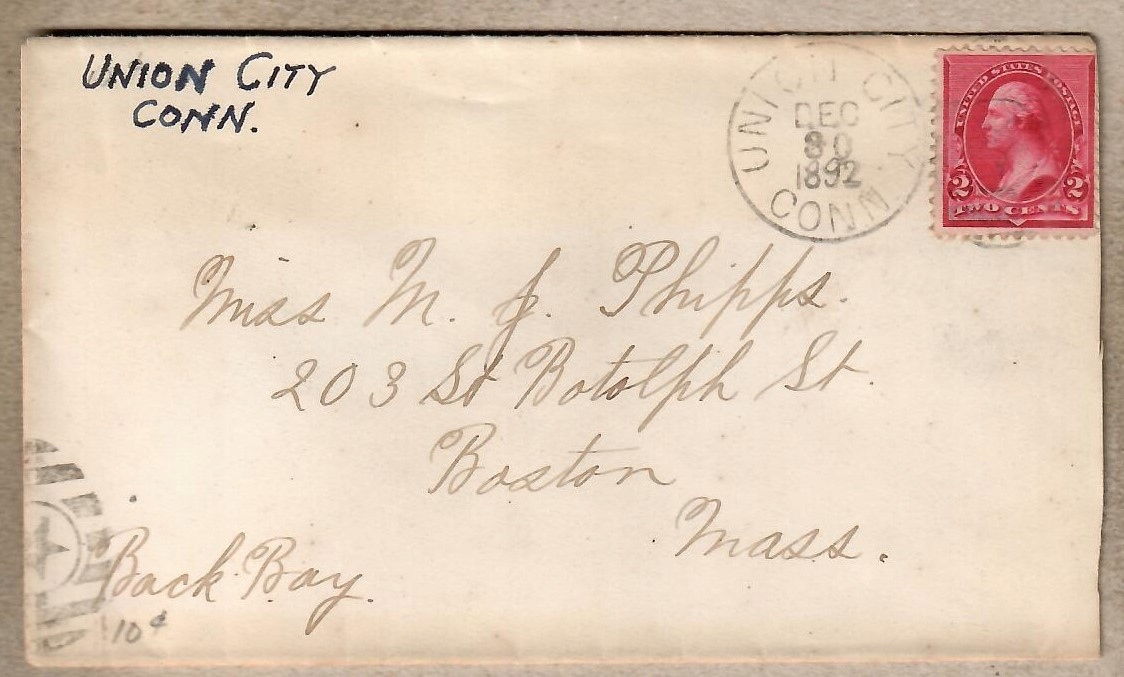 UNION CITY
CONN.
UNION CITY
DEC
30
1892
CONN
UNITED STATES POSTAGE
2 2
TWO CENTS
Miss M. J. Phipps.
203 St Botolph St.
Boston
Mass.
Back Bay.
10¢